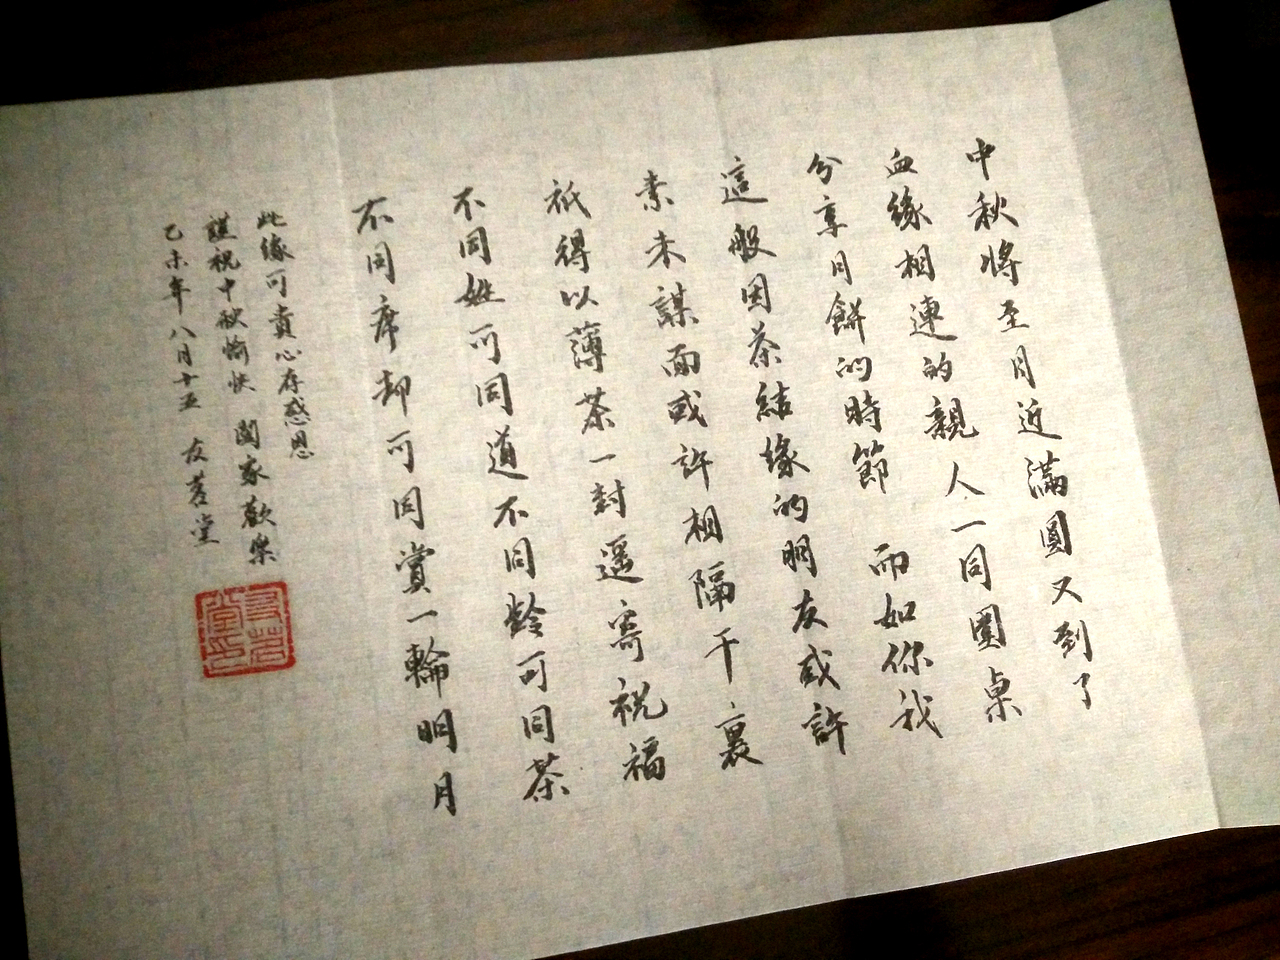 中秋將至月近滿圓又到了
血緣相連的親人一同圍桌
分享月餅的時節 而如你我
這般因茶結緣的朋友或許
素未謀面或許相隔千裏
祇得以薄茶一封遥寄祝福
不同姓可同道不同齡可同茶
不同席却可同賞一輪明月
此緣可貴心存感恩
謹祝中秋愉快 闔家歡樂
乙未年八月十五 友茗堂
友茗堂印